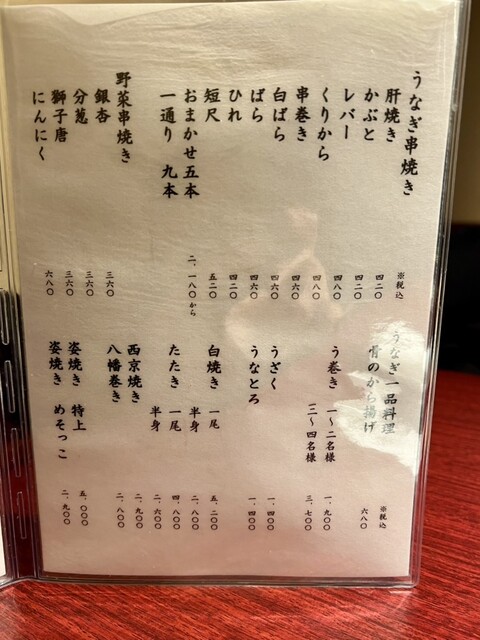 うなぎ串焼き ※税込
肝焼き 四二〇
かぶと 四二〇
レバー 四八〇
くりから 四八〇
串巻き 四六〇
白ばら 四六〇
ばら 四六〇
ひれ 四二〇
短尺 五二〇
おまかせ五本 二、一八〇から
一通り 九本
野菜串焼き
銀杏 三六〇
分葱 三六〇
獅子唐 三六〇
にんにく 六八〇
うなぎ一品料理 ※税込
骨のから揚げ 六八〇
う巻き 一〜二名様 一、九〇〇
三〜四名様 三、七〇〇
うざく 一、四〇〇
うなとろ 一、四〇〇
白焼き 一尾 五、二〇〇
半身 二、八〇〇
たたき 一尾 四、八〇〇
半身 二、六〇〇
西京焼き 二、九〇〇
八幡巻き 二、八〇〇
姿焼き 特上 五、〇〇〇
姿焼き めそっこ 二、九〇〇